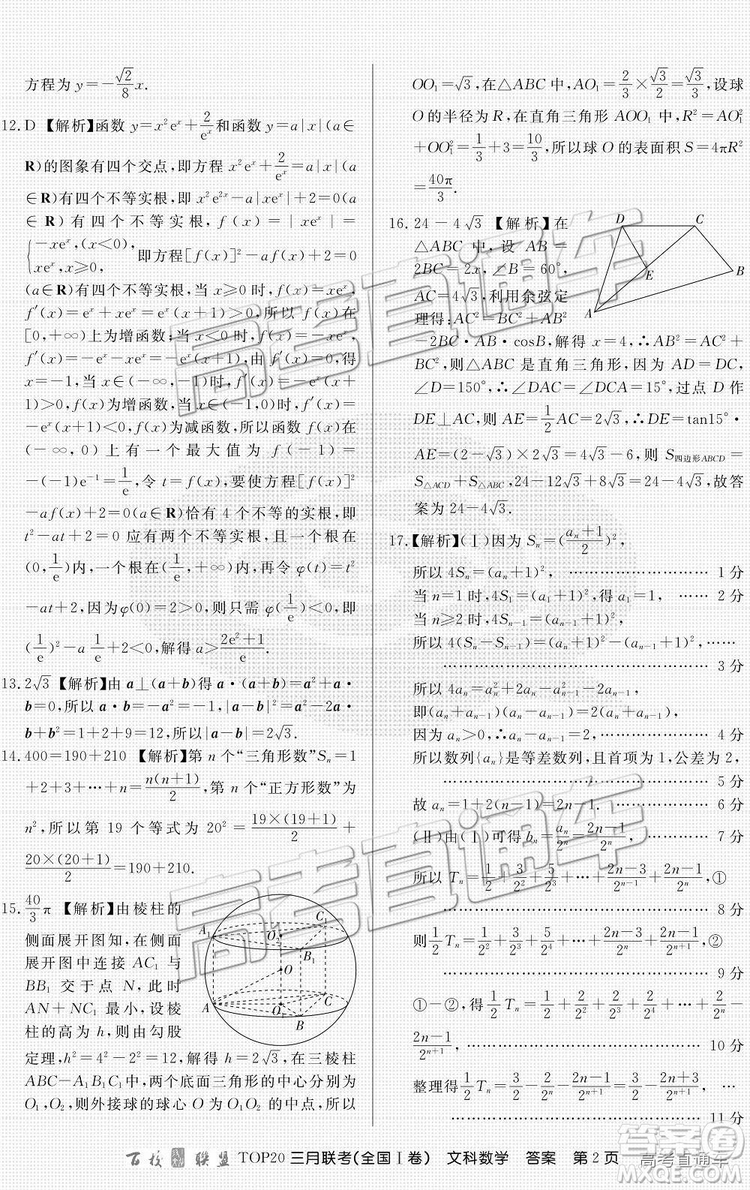 方程为 y=-\frac{\sqrt{2}}{8}x.
12.D 【解析】函数 y=x²eˣ+\frac{2}{eˣ}和函数 y=a|x|(a∈
R)的图象有四个交点,即方程 x²eˣ+\frac{2}{eˣ}=a|x|(a
∈R)有四个不等实根,即 x²e²ˣ-a|x|eˣ+2=0(a
∈R)有四个不等实根,f(x)=|xeˣ|=
{-xeˣ,x<0, xeˣ,x≥0, 即方程[f(x)]²-af(x)+2=0
(a∈R)有四个不等实根,当 x≥0 时,f(x)=xeˣ,
f′(x)=eˣ+xeˣ=eˣ(x+1)>0,所以 f(x)在
[0,+∞)上为增函数;当 x<0 时,f(x)=-xeˣ,
f′(x)=-eˣ-xeˣ=-eˣ(x+1),由 f′(x)=0,得
x=-1,当 x∈(-∞,-1)时,f′(x)=-eˣ(x+1)
>0,f(x)为增函数,当 x∈(-1,0)时,f′(x)=
-eˣ(x+1)<0,f(x)为减函数,所以函数 f(x)在
(-∞,0)上有一个最大值为 f(-1)=
-(-1)e⁻¹=\frac{1}{e},令 t=f(x),要使方程[f(x)]²-
af(x)+2=0(a∈R)恰有 4 个不等的实根,即
t²-at+2=0 应有两个不等实根,且一个根在
(0,\frac{1}{e})内,一个根在(\frac{1}{e},+∞)内,令 φ(t)=t²-
at+2,因为 φ(0)=2>0,则只需 φ(\frac{1}{e})<0,即
(\frac{1}{e})²-\frac{1}{e}a+2<0,解得 a>\frac{2e²+1}{e}.
13.2√3 【解析】由 a⊥(a+b)得 a·(a+b)=a²+a·
b=0,所以 a·b=-a²=-1,|a-b|²=a²-2a·
b+b²=1+2+9=12,所以|a-b|=2√3.
14.400=190+210 【解析】第 n 个“三角形数”Sₙ=1
+2+3+…+n=\frac{n(n+1)}{2},第 n 个“正方形数”为
n²,所以第 19 个等式为 20²=\frac{19×(19+1)}{2}+
\frac{20×(20+1)}{2}=190+210.
15.\frac{40}{3}π 【解析】由棱柱的
侧面展开图知,在侧面展
开图中连接 AC₁ 与
BB₁ 交于点 N,此时
AN+NC₁ 最小,设棱
柱的高为 h,则由勾股
定理,h²=4²-2²=12,解得 h=2√3,在三棱柱
ABC-A₁B₁C₁ 中,两个底面三角形的中心分别为
O₁,O₂,则外接球的球心 O 为 O₁O₂ 的中点,所以
A₁
C₁
O₂
B₁
O
A
C
O₁
B
OO₁=√3,在△ABC 中,AO₁=\frac{2}{3}×\frac{\sqrt{3}}{2}×2=\frac{2}{\sqrt{3}},设球
O 的半径为 R,在直角三角形 AOO₁ 中,R²=AO₁²
+OO₁²=\frac{1}{3}+3=\frac{10}{3},所以球 O 的表面积 S=4πR²
=\frac{40π}{3}.
16.24-4√3 【解析】在
△ABC 中,设 AB=
2BC=2x,∠B=60°,
AC=4√3,利用余弦定
理得:AC²=BC²+AB²
-2BC·AB·cosB,解得 x=4. ∴AB²=AC²+
BC²,则△ABC 是直角三角形,因为 AD=DC,
∠D=150°,∴∠DAC=∠DCA=15°,过点 D 作
DE⊥AC,则 AE=\frac{1}{2}AC=2√3,∴DE=tan15°·
AE=(2-√3)×2√3=4√3-6,则 S四边形ABCD=
S△ACD+S△ABC,=24-12√3+8√3=24-4√3,故答
案为 24-4√3.
D
C
E
B
A
17.【解析】(Ⅰ)因为 Sₙ=(\frac{aₙ+1}{2})²,
所以 4Sₙ=(aₙ+1)², ………………… 1 分
当 n=1 时,4S₁=(a₁+1)²,得 a₁=1,
当 n≥2 时,4Sₙ₋₁=(aₙ₋₁+1)²,
所以 4(Sₙ-Sₙ₋₁)=(aₙ+1)²-(aₙ₋₁+1)²,……
………………………………… 3 分
所以 4aₙ=aₙ²+2aₙ-aₙ₋₁²-2aₙ₋₁,
即(aₙ+aₙ₋₁)(aₙ-aₙ₋₁)=2(aₙ+aₙ₋₁),
因为 aₙ>0,所以 aₙ-aₙ₋₁=2, ………… 4 分
所以数列{aₙ}是等差数列,且首项为 1,公差为 2,
………………………………… 5 分
故 aₙ=1+2(n-1)=2n-1. ………… 6 分
(Ⅱ)由(Ⅰ)可得 bₙ=\frac{aₙ}{2ⁿ}=\frac{2n-1}{2ⁿ}, …… 7 分
所以 Tₙ=\frac{1}{2}+\frac{3}{2²}+\frac{5}{2³}+…+\frac{2n-3}{2ⁿ⁻¹}+\frac{2n-1}{2ⁿ},①
………………………………… 8 分
则\frac{1}{2}Tₙ=\frac{1}{2²}+\frac{3}{2³}+…+\frac{2n-3}{2ⁿ}+\frac{2n-1}{2ⁿ⁺¹},②
………………………………… 9 分
①-②,得\frac{1}{2}Tₙ=\frac{1}{2}+\frac{2}{2²}+\frac{2}{2³}+…+\frac{2}{2ⁿ}-
\frac{2n-1}{2ⁿ⁺¹}, ………………………… 10 分
整理得\frac{1}{2}Tₙ=\frac{3}{2}-\frac{2}{2ⁿ}-\frac{2n-1}{2ⁿ⁺¹}, …
………………………………… 11 分
百校联盟 TOP20 三月联考(全国Ⅰ卷) 文科数学 答案 第 2 页
高考直通车
高考直通车
答案圈
MXQE.COM
高考直通车